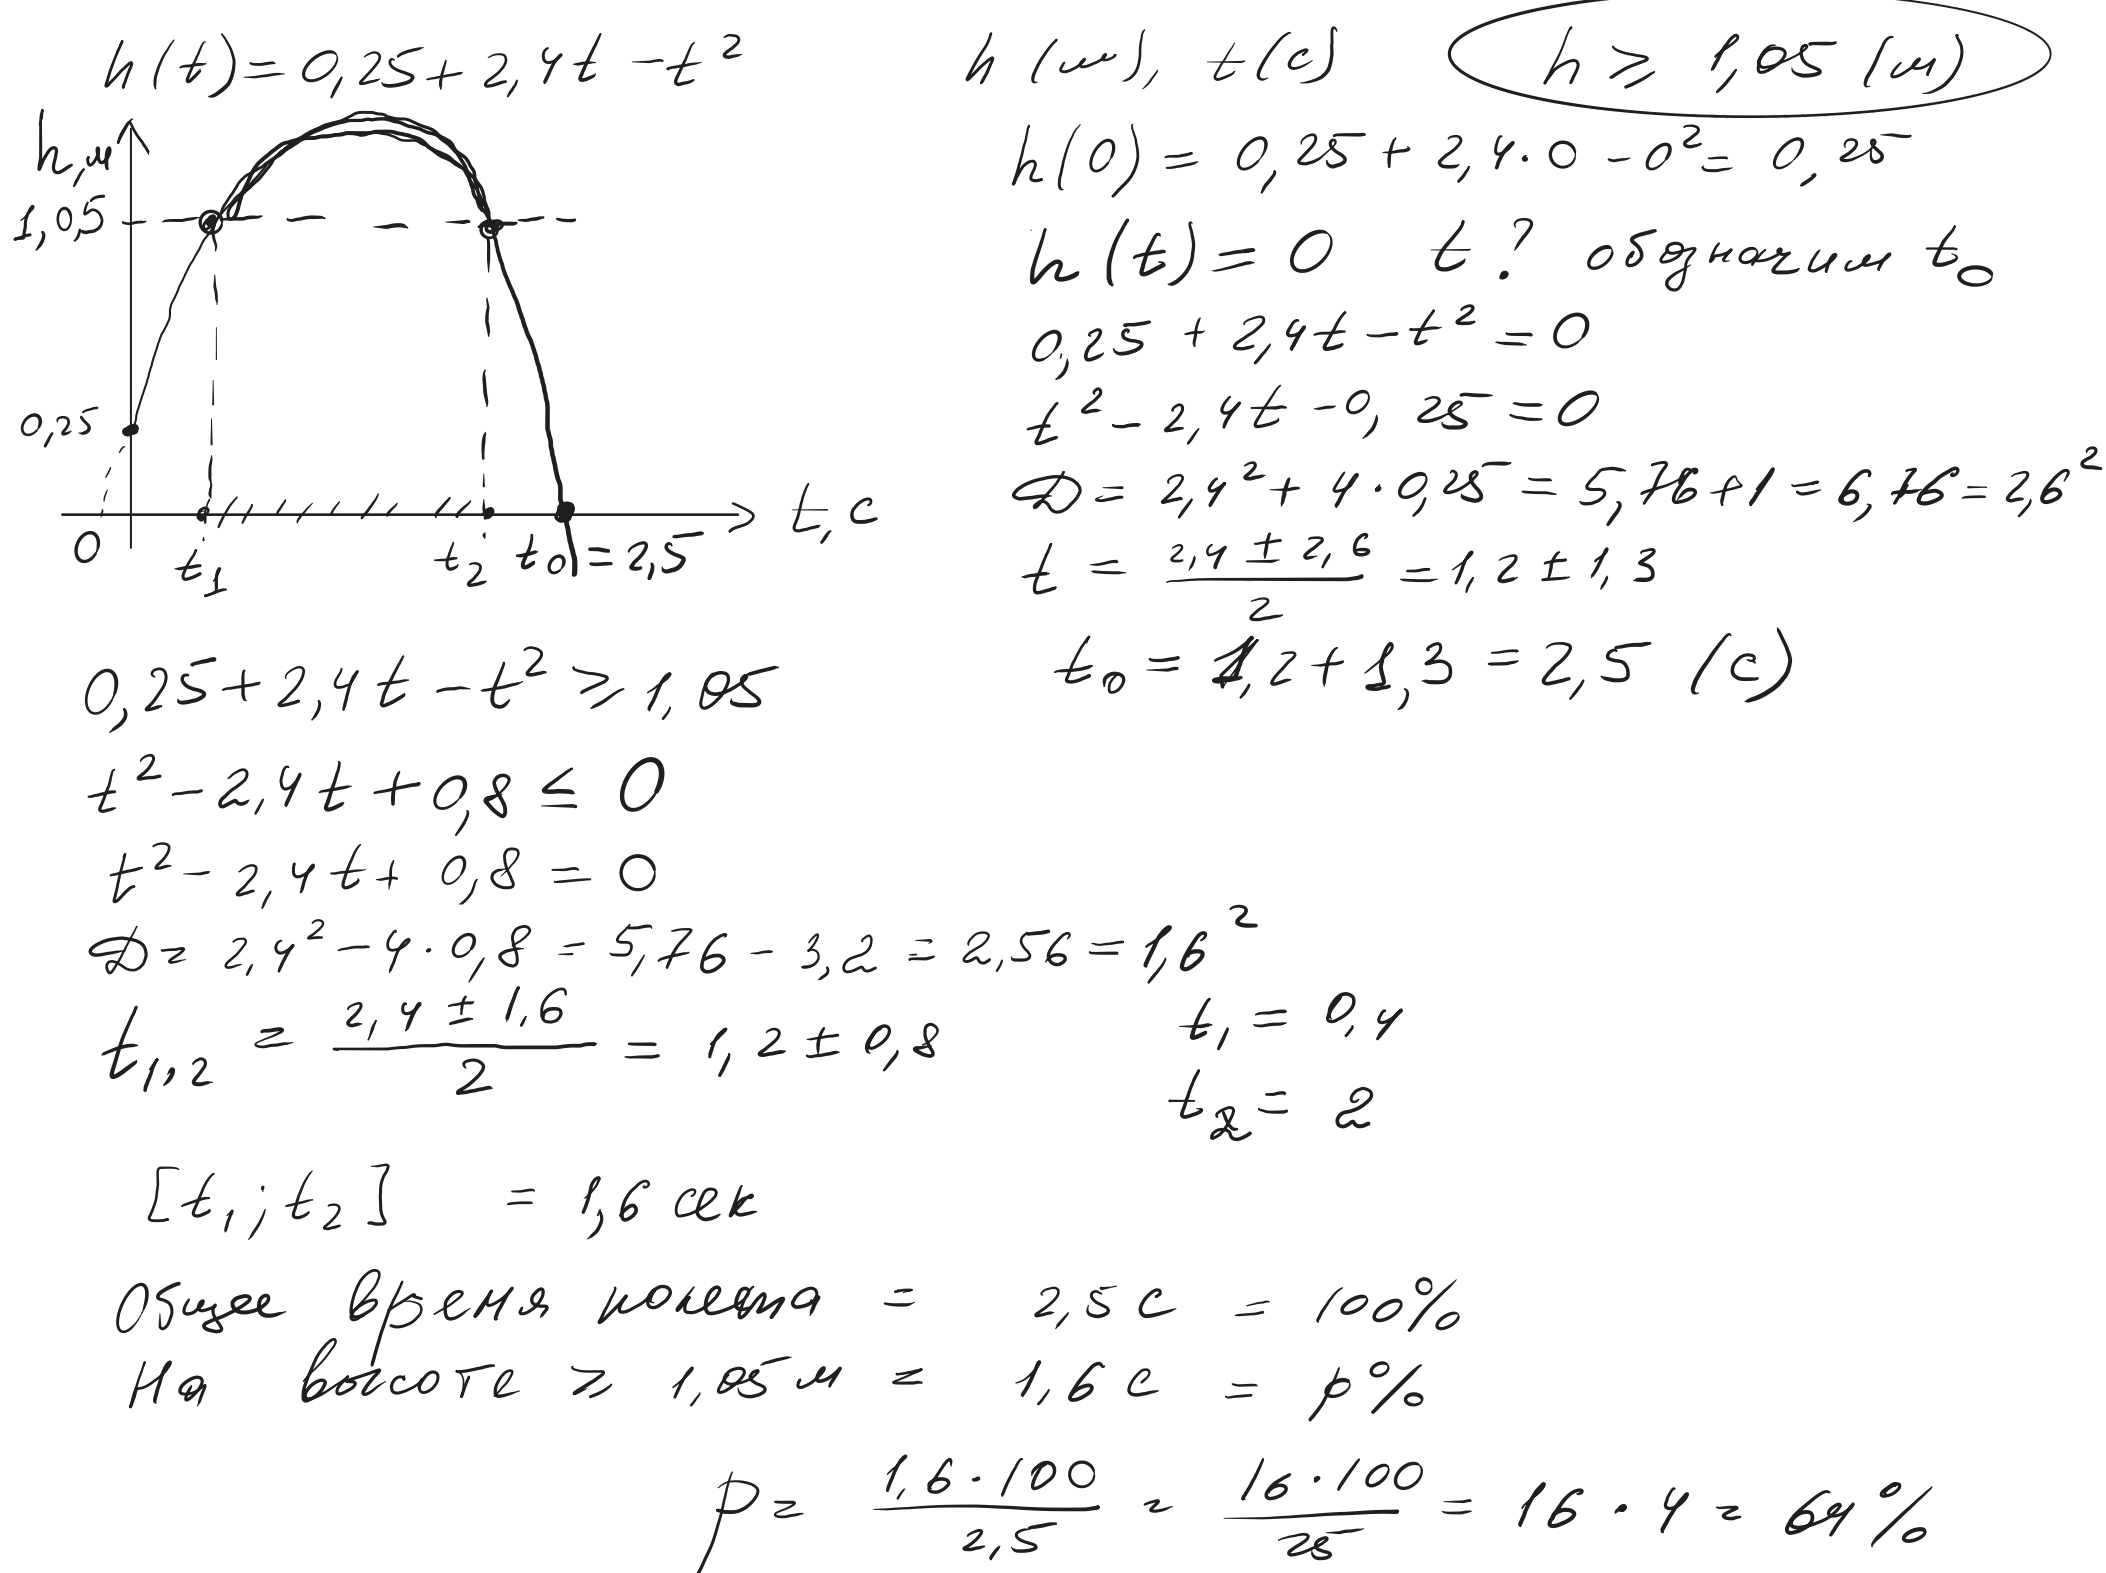 h(t)=0,25+2,4t-t²
h(м), t(c)
h ≥ 1,05 (м)
h,м
1,05
0,25
0
t₁
t₂
t₀=2,5
t,c
h(0) = 0,25 + 2,4·0 - 0² = 0,25
h(t)=0 t? обозначим t₀
0,25 + 2,4t - t² = 0
t² - 2,4t - 0,25 = 0
D = 2,4² + 4·0,25 = 5,76+1 = 6,76 = 2,6²
t = (2,4 ± 2,6)/2 = 1,2 ± 1,3
t₀ = 1,2+1,3 = 2,5 (c)
0,25+2,4t-t² ≥ 1,05
t² - 2,4t + 0,8 ≤ 0
t² - 2,4t + 0,8 = 0
D = 2,4² - 4·0,8 = 5,76 - 3,2 = 2,56 = 1,6²
t₁,₂ = (2,4 ± 1,6)/2 = 1,2 ± 0,8
t₁ = 0,4
t₂ = 2
[t₁;t₂] = 1,6 сек
Общее время полета = 2,5 c = 100%
На высоте ≥ 1,05 м = 1,6 c = p%
p = (1,6·100)/2,5 = (16·100)/25 = 16·4 = 64%